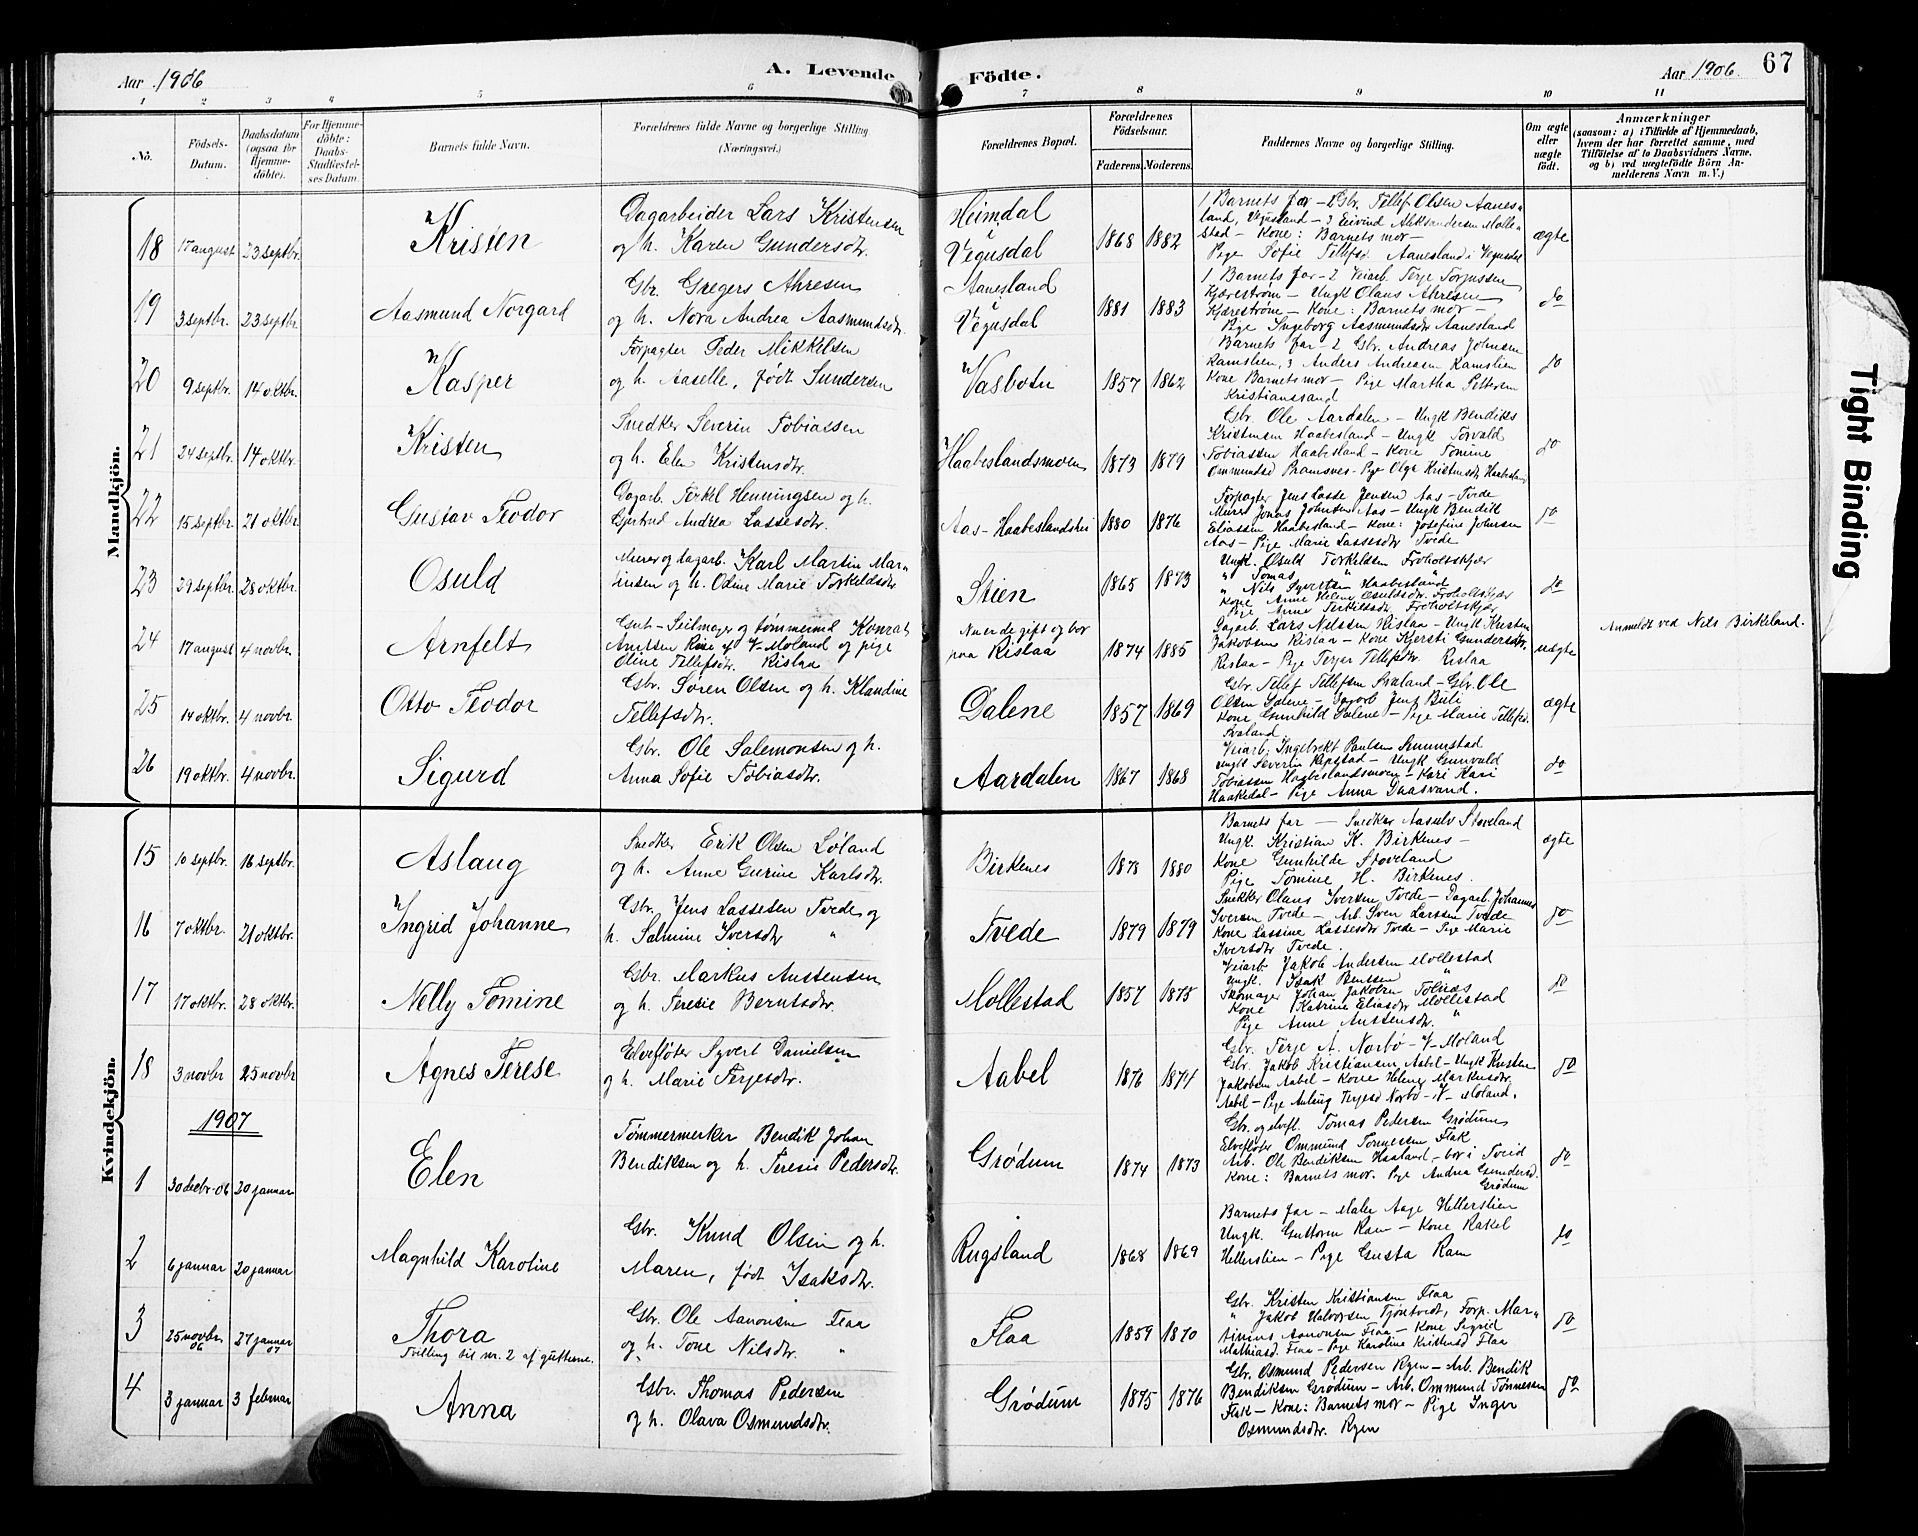 Aar 1906
A. Levende Födte.
Aar 1906. 67
1 2 3 4 5 6 7 8 9 10 11
No.
Födsels-
Datum.
Daabsdatum
(ogsaa for
Hjemme-
döbte).
For Hjemme-
döbte:
Daabs-
Stadfæstel-
ses Datum.
Barnets fulde Navn.
Forældrenes fulde Navne og borgerlige Stilling
(Næringsvei.)
Forældrenes Bopæl.
Forældrenes
Födselsaar.
Faderens. Moderens.
Faddernes Navne og borgerlige Stilling.
Om ægte
eller
uægte
födt.
Anmærkninger
(saasom: a) i Tilfælde af Hjemmedaab,
hvem der har forrettet samme, med
Tilföielse af to Daabsvidners Navne,
og b) ved uægtefödte Börn An-
melderens Navn m. V.)
Mandkjön.
18 17 august 23 septbr.
Kristen
Dagarbeider Lars Kristensen
og h. Karen Gundersdtr.
Heimdal
i
Vegusdal
1868 1882
1 Barnets far - 2 Gbr. Tellef Olsen Aanes-
land, Vegusland - 3 Eivind Aleksandersen Molle-
stad - Kone: Barnets mor -
Pige Sofie Tellefsd. Aanesland i Vegusdal
ægte
19 3 septbr. 23 septbr.
Aasmund Norgard
Gbr. Gregers Ahresen
og h. Nora Andrea Aasmundsdtr.
Aanesland
i
Vegusdal
1881 1883
1 Barnets far - 2 Veiarb. Terje Torjussen
Kjærestrøm - Ungk Olaus Ahresen
Kjærestrøm - Kone: Barnets mor -
Pige Ingeborg Aasmundsdtr Aanesland
do
20 9 septbr. 14 oktbr.
Kasper
Forpagter Peder Mikkelsen
og h. Aaselle, født Gundersen
Vasbotn
1857 1862
Barnets far - 2 Gbr. Andreas Johnsen
Ramslien, 3 Anders Andreasen Ramslien
Kone Barnets mor - Pige Martha Pettersen
Kristianssand
do
21 24 septbr. 14 oktbr.
Kristen
Snedker Severin Tobiassen
og h. Elen Kristensdtr.
Haabeslandsmoen
1873 1879
Gbr. Ole Aardalen - Ungk Bendiks
Kristensen Haabesland - Ungk Torvald
Tobiassen Haabesland - Kone Tomine
Ommundsd Pramsnes - Pige Olga Kristensdtr Haabesland
do
22 15 septbr. 21 oktbr.
Gustav Teodor
Dagarb. Terkel Henningsen og h.
Gjertrud Andrea Lassesdtr.
Aas - Haabeslandshei
1880 1876
Forpagter Jens Lasse Jensen Aas - Tvede
Murer Jonas Johnsen Aas - Ungk Bendik
Eliassen Haabesland - Kone: Josefine Johnsen
Aas - Pige Marie Lassesdtr Tvede
do
23 29 septbr. 28 oktbr.
Osuld
Murer og dagarb. Karl Martin Mar-
tinsen og h. Odine Marie Torkeldsdtr
Stien
1865 1873
Ungk. Osuld Torkeldsen Froholtskjær
" Tomas " "
" Nils Syvertsen Haabesland
Kone Anne Helene Osuldsdtr. Froholtskjær
Pige Anne Terkildsdtr. Froholtskjær
do
24 17 august 4 novbr.
Arnfelt
Gut - Seilmager og tømmermd Konrad
Anutsen Rose af V-Moland og pige
Oline Tellefsdtr. Rislaa
Nu er de gift og bor
paa Rislaa
1874 1885
Dagarb. Lars Nilssen Rislaa - Ungk Kristen
Jakobsen Rislaa - Kone Kjersti Gundersdtr.
Rislaa - Pige Terjer Tellefsdtr. Rislaa
uægte
Anmeldt ved Nils Birkeland.
25 14 oktbr. 4 novbr.
Otto Teodor
Gbr. Søren Olsen og h. Klandine
Tellefsdtr.
Dalene
1857 1869
Gbr. Tellef Tellefsen Svaland - Gbr. Ole
Olsen Dalene - Dagarb Jens Bieli
Kone Gunhild Dalene - Pige Marie Tellefsd.
Svaland.
ægte
26 19 oktbr. 4 novbr.
Sigurd
Gbr. Ole Salemonsen og h.
Anna Sofie Tobiasdtr.
Aardalen
1867 1868
Veiarb. Ingebrekt Paulsen Senumstad
Ungk Severin Repstad - Ungk Gunvald
Tobiassen Haabeslandsmoen - Kari Kari
Haakedal - Pige Anna Daasvand.
do
Kvindekjön.
15 10 septbr. 16 septbr.
Aslaug
Snedker Erik Olsen Løland
og h. Anne Gurine Karlsdtr.
Birkenes
1878 1880
Barnets far - Snedker Aasulv Støveland
Ungk. Kristian K. Birkenes -
Kone Gunhilde Støveland
Pige Tomine H. Birkenes.
ægte
16 7 oktbr. 21 oktbr.
Ingrid Johanne
Gbr. Jens Lassesen Tvede og
h. Salmine Iversdtr "
Tvede
1879 1879
Snekker Olaus Iversen Tvede - Dagarb. Johannes
Iversen Tvede - Arb. Sven Larssen Tvede
Kone Lassine Lassesdtr Tvede - Pige Marie
Iversdtr Tvede.
do
17 17 oktbr. 28 oktbr.
Nelly Tomine
Gbr. Markus Anstensen
og h. Teresie Berntsdtr.
Mollestad
1857 1875
Veiarb. Jakob Andersen Mollestad
Ungk. Isak Berntsen "
Skomager Johan Jakobsen Tobias
Kone Katrine Eliasdtr Mollestad
Pige Anne Anstensdtr. "
do
18 3 novbr 25 novbr
Agnes Terese
Elvefløter Syvert Danielsen
og h. Marie Terjesdtr.
Aabel
1876 1874
Gbr. Terje A. Norbø - V-Moland
Gbr. Jakob Kristiansen Aabel - Ungk Kristen
Jakobsen Aabel - Kone Helene Markusdtr.
Aabel - Pige Aslaug Terjesd Norbø - V-Moland.
do
1907
1 30 decbr-06 20 januar
Elen
Tømmermerker Bendik Johan
Bendiksen og h. Teresie Pedersdtr.
Grødum
1874 1873
Gbr. og elvefl. Tomas Pedersen Grødum
Elvefløter Ommund Tønnessen Flak
Arb. Ole Bendiksen Haaland - bor i Tveid
Kone: Barnets mor. Pige Andrea Gundersd.
Grødum
do
2 6 januar 20 januar
Magnhild Karoline
Gbr. Knud Olsen og h.
Maren, født Isaksdtr.
Rugsland
1868 1869
Barnets far - Maler Aage Hellerslien
Ungk. Guttorm Ram - Kone Rakel
Hellerslien - Pige Gusta Ram
do
3 25 novbr. 06 27 januar 07
Thora
Tvilling til nr. 2 af gutterne.
Gbr. Ole Aanonsen Flaa
og h. Tone Nilsdtr. "
Flaa
1859 1870
Gbr. Kristen Kristiansen Flaa
" Jakob Halvorsen Tjøntvedt, Forp. Mar-
tinius Aanonsen Flaa - Kone Sigrid
Mathiasd. Flaa - Pige Karoline Kristensd Flaa
do
4 3 januar 3 februar
Anna
Gbr. Thomas Pedersen
og h. Olava Osmundsdtr.
Grødum
1875 1876
Gbr. Osmund Pedersen Rgen - Arb. Bendik
Bendiksen Grødum - Arb. Ommund Tønnessen
Flak - Kone: Barnets mor - Pige Inger
Osmundsdtr. Rgen
do
Tight Binding